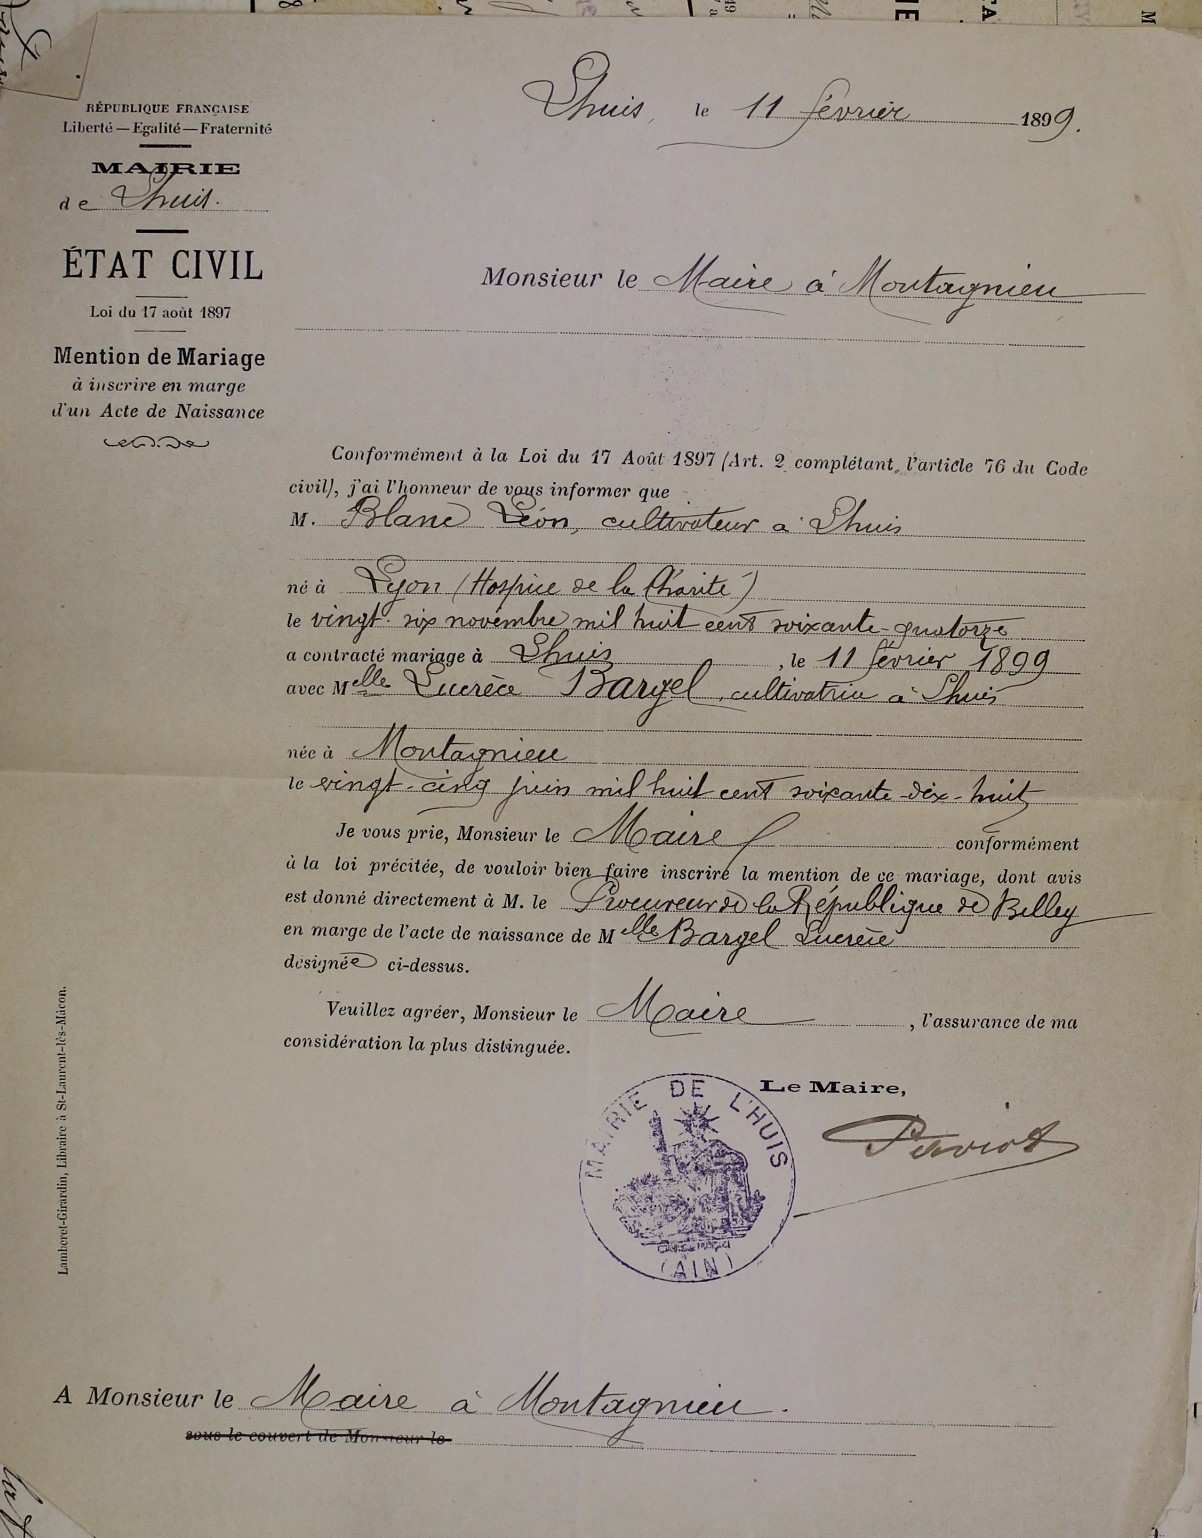 Lhuis, le 11 février 1899.
RÉPUBLIQUE FRANÇAISE
Liberté — Egalité — Fraternité
MAIRIE
de Lhuis.
ÉTAT CIVIL
Loi du 17 août 1897
Mention de Mariage
à inscrire en marge
d'un Acte de Naissance
Monsieur le Maire à Montagnieu
Conformément à la Loi du 17 Août 1897 (Art. 2 complétant l'article 76 du Code
civil), j'ai l'honneur de vous informer que
M. Blanc Léon, cultivateur à Lhuis
né à Lyon (Hospice de la Charité)
le vingt-six novembre mil huit cent soixante-quatorze
a contracté mariage à Lhuis, le 11 février 1899
avec Melle Lucrèce Bargel, cultivatrice à Lhuis
née à Montagnieu
le vingt-cinq juin mil huit cent soixante-dix-huit
Je vous prie, Monsieur le Maire conformément
à la loi précitée, de vouloir bien faire inscrire la mention de ce mariage, dont avis
est donné directement à M. le Procureur de la République de Belley
en marge de l'acte de naissance de Melle Bargel Lucrèce
designée ci-dessus.
Veuillez agréer, Monsieur le Maire, l'assurance de ma
considération la plus distinguée.
Le Maire,
MAIRIE DE L'HUIS
(AIN)
A Monsieur le Maire à Montagnieu.
sous le couvert de Monsieur le
Lamberet-Girardin, Libraire à St-Laurent-lès-Mâcon.